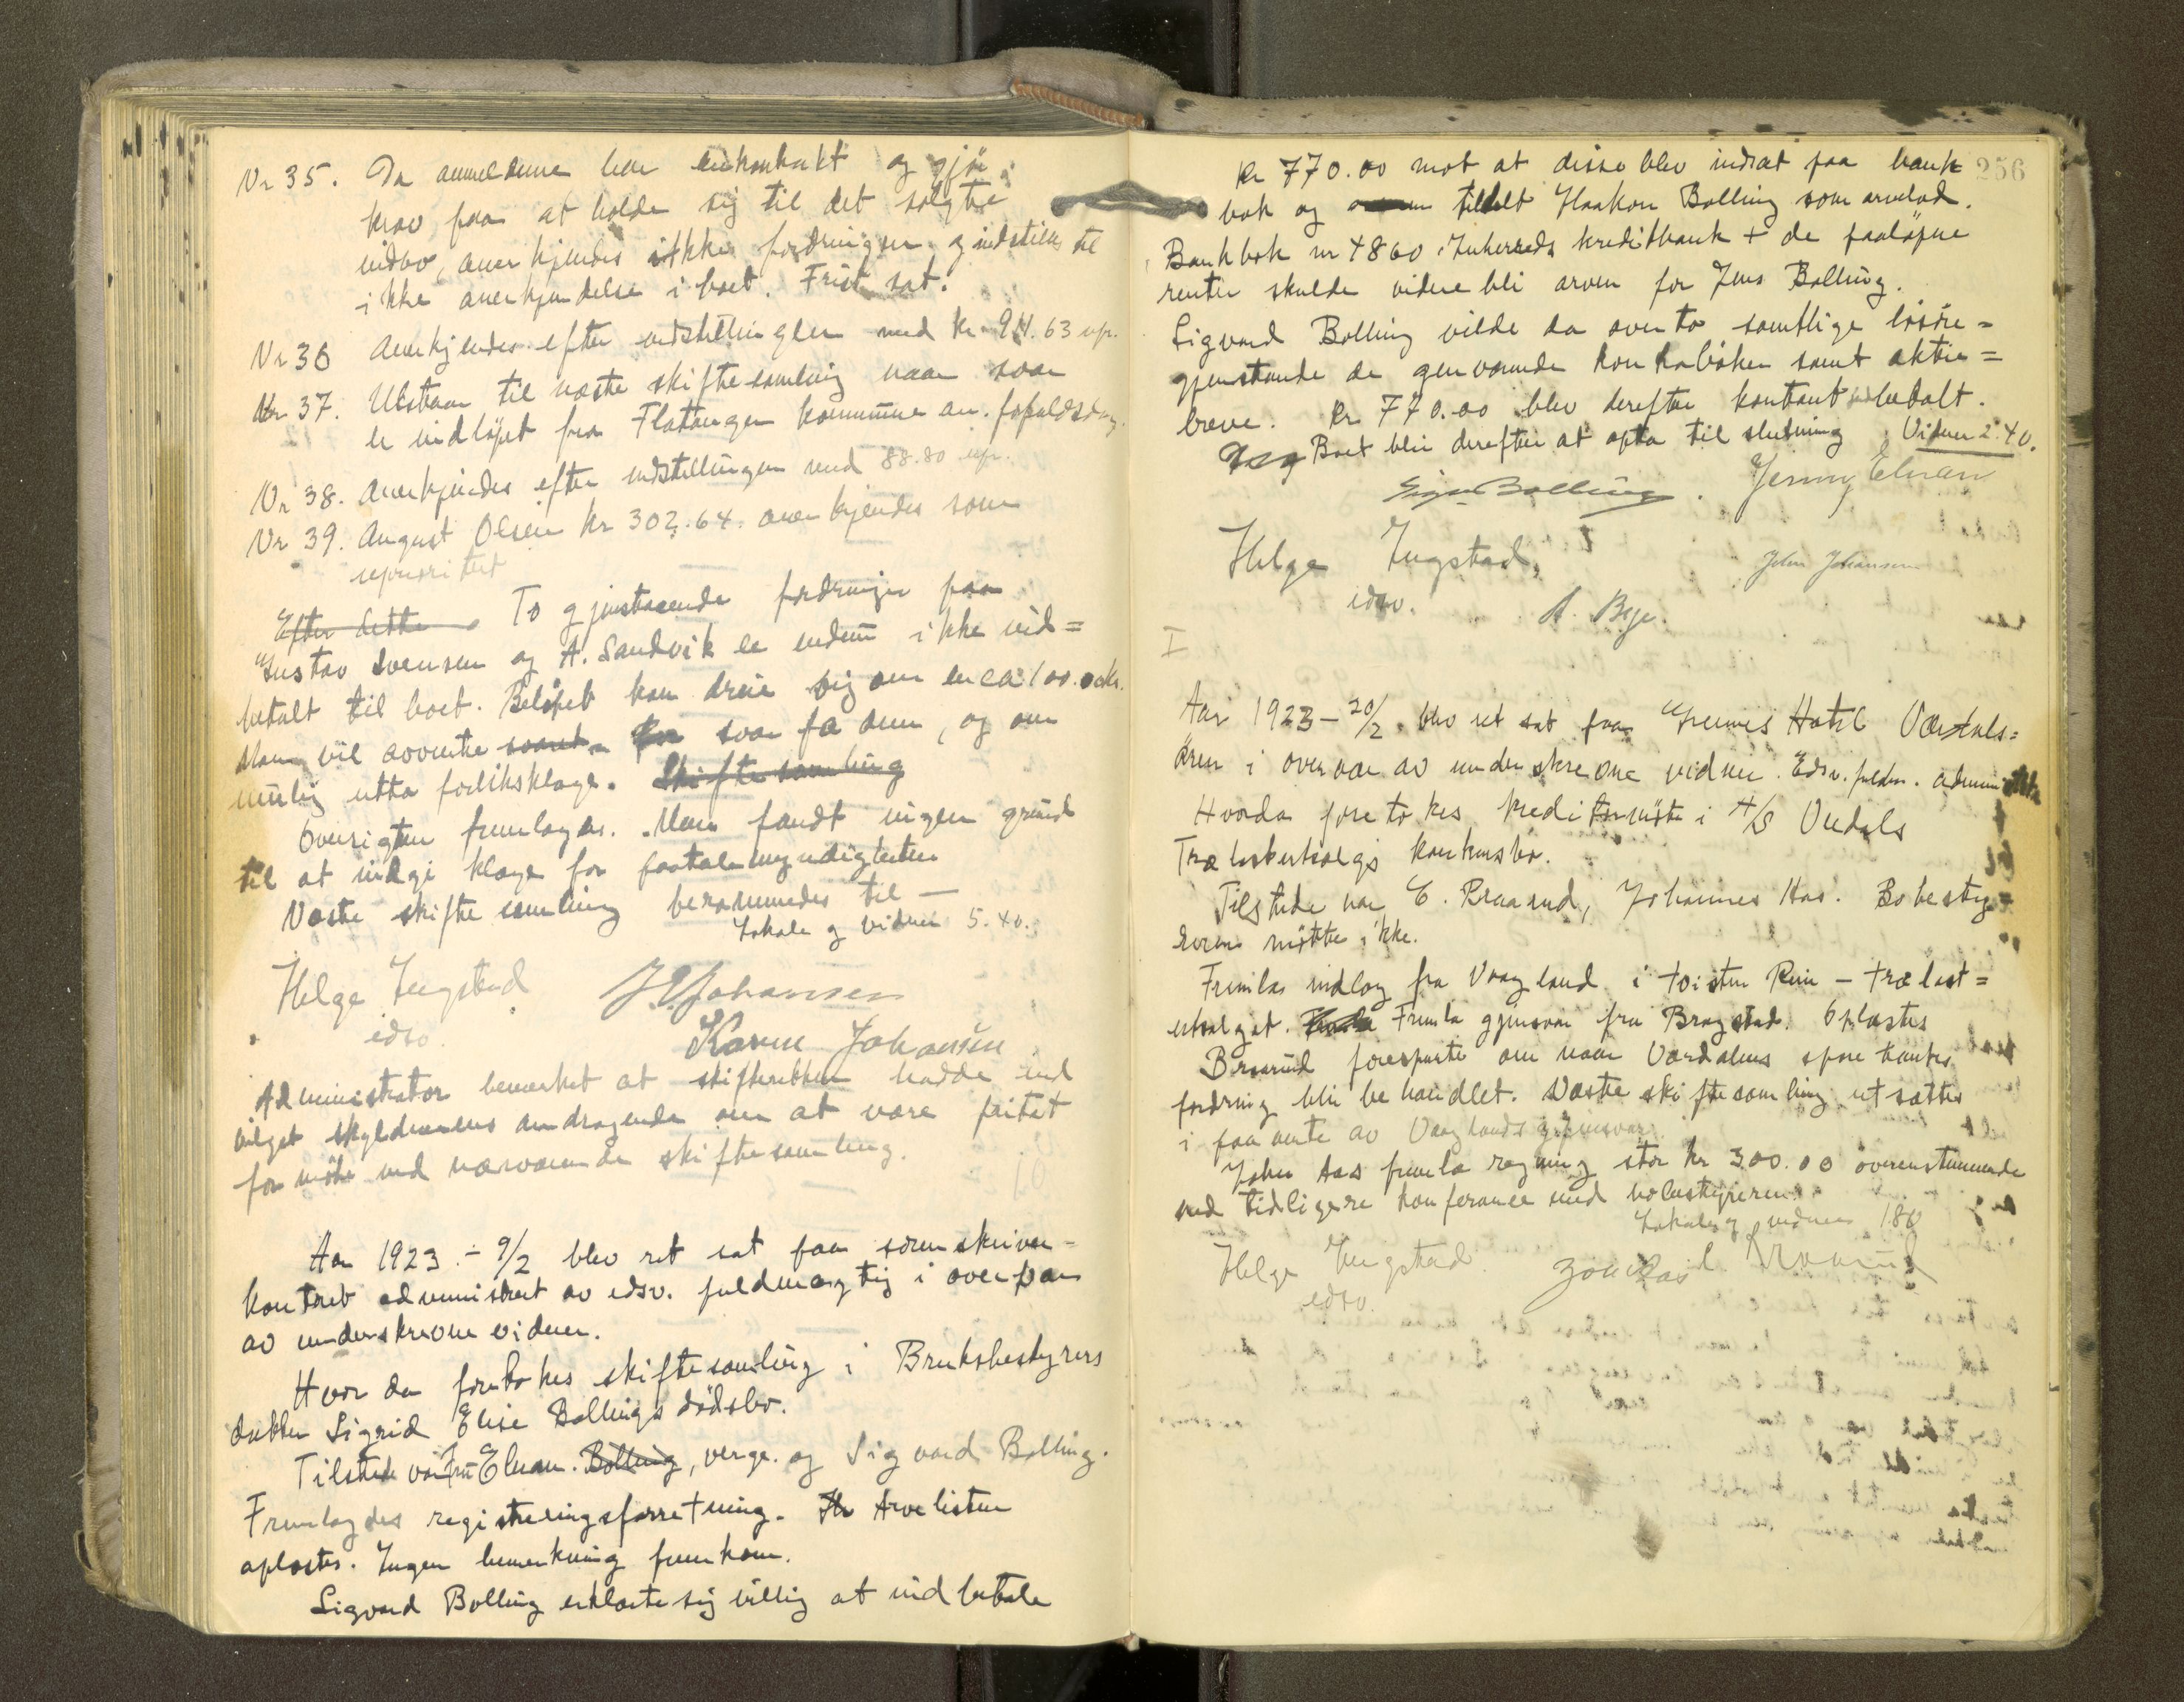 Nr 35. Da anmelderne har leiekontrakt og gjör
krav paa at holde sig til det solgte
indbo, anerkjendes ikke fordringen og indstilles til
ikke anerkjendelse i boet. Frist sat.
Nr 36 Anerkjendes efter indstillingen med kr. 911.63 upr.
Nr 37. Utstaar til næste skiftesamling naar svar
er indløpet fra Flatanger kommune an. forfaldsdag.
Nr 38. Anerkjendes efter indstillingen med 88.80 upr.
Nr 39. August Olsen kr 302.64. anerkjendes som
uprioritert
Efter dette To gjenstaaende fordringer paa
Gustav Svensen og A. Sandvik er endnu ikke ind=
betalt til boet. Beløpet kan dreie sig om en ca 100.00 kr.
Man vil avvente svaret svar fra dem, og om
mulig utta forliksklage. Skiftesamling
Oversigten fremlagdes. Man fandt ingen grund
til at indgi klage for paatalemyndigheten
Næste skiftesamling berammedes til —
Lokale og vidner 5.40.
Helge Ingstad J Johansen
edsv. Karen Johansen
Administrator bemerket at skifteretten hadde ind
vilget skyldnerens andragende om at være fritat
for møte ved nærværende skiftesamling.
Aar 1923 - 9/2 blev ret sat paa sorenskriver=
kontoret administrert av edsv. fuldmægtig i overvær
av underskrevne vidner.
Hvorda foretokes skiftesamling i Bruksbestyrers
datter Sigrid Elise Bollings dödsbo.
Tilstede var Fru Elnan. Bolling, verge. og Sigvard Bolling.
Fremlagdes registreringsforretning. Arvelisten
oplæstes. Ingen bemerkning fremkom.
Sigvard Bolling erklærte sig villig at indbetale
256
kr 770.00 mot at disse blev indsat paa bank
bok og tildelt Haakon Bolling som arvelod.
Bankbok nr 4860 Inherreds kreditbank + de paaløpne
renter skulde videre bli arven for Jens Bolling.
Sigvard Bolling vilde da overta samtlige løsöre=
gjenstande de genværende kontrabøker samt aktie=
breve. Kr 770.00 blev derefter kontant indbetalt.
Boet blir derefter at opta til slutning. Vidner 2.40.
Sigv Bolling. Jenny Elnan
Helge Ingstad, John Johansen
edsv. A. Bye.
I
Aar 1923 - 20/2 blev ret sat paa Hotel Værdals=
ören i overvær av underskrevne vidner. Edsv. fuldm. administrerte
Hvorda foretokes kreditormöte i A/S Verdals
Trælastutsalgs konkursbo.
Tilstede var E. Braarud, Johannes Has. Bobesty=
reren mötte ikke.
Fremlas indlæg fra Vaagland i tvisten Rein - trælast=
utsalget. Fremla gjensvar fra Bragstad. Oplæstes
Braarud forespurte om naar Værdalens sparebanks
fordring blir behandlet. Næste skiftesamling utsættes
i paavente av Vaaglands gjensvar.
John Aas fremla regning stor kr 300.00 overenstemmende
med tidligere konferance med bobestyreren.
Lokale og vidner 1.80
Helge Ingstad. Braarud
edsv.